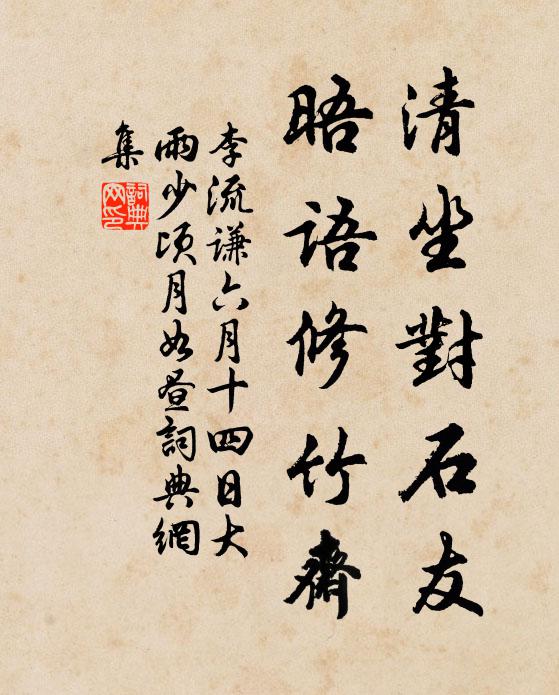 清坐對石友
晤語修竹齋
李流謙六月十四日大
雨少頃月如晝詞典網
集
詞典網印